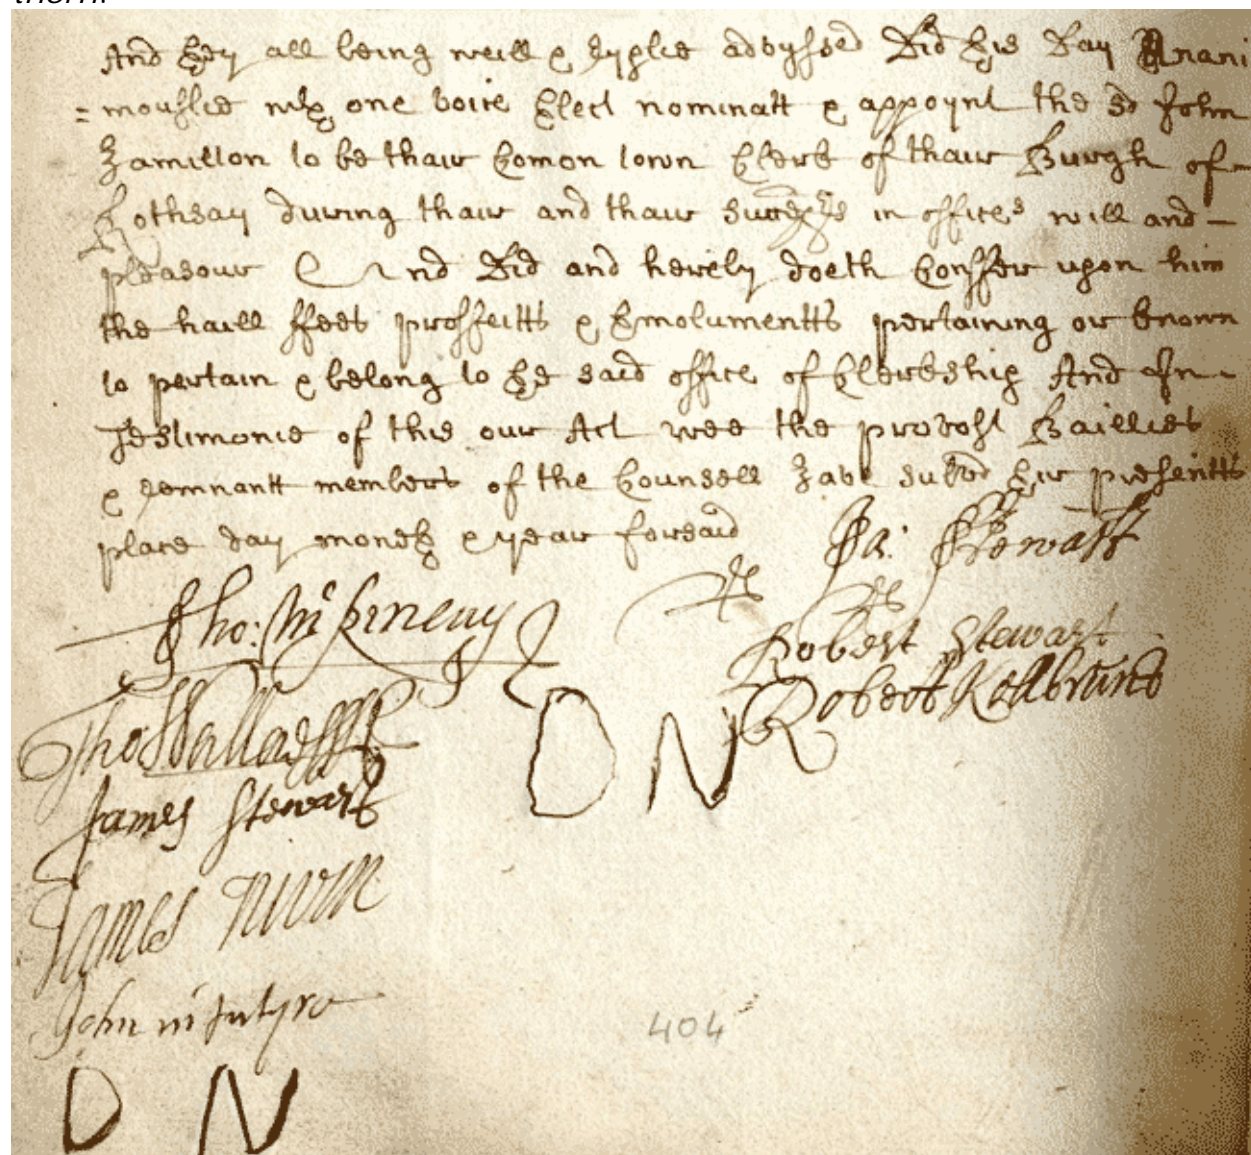 them.
And they all being weill & ryplie advyssed Did this Day Unani
=mouslie with one voice Elect nominatt & appoynt the sd John
Hamilton to be thair Comon town Clerk of thair Burgh of
Rothsay during thair and thair in office will and
pleasour And Did and hereby doeth Conffer upon him
the haill ffees proffeitts & Emolumentts pertaining or known
to pertain & belong to the said office of Clerkship And In
Testimonie of this our Act wee the provost Baillies
& remnantt members of the Counsell have thir presentts
place day moneth & year forsaid
Ja: Stewart
Tho: Mc
Robert Stewart
Robert
Tho Wallace
D N
James Stewart
James Nivin
John mc Intyre
404
D N